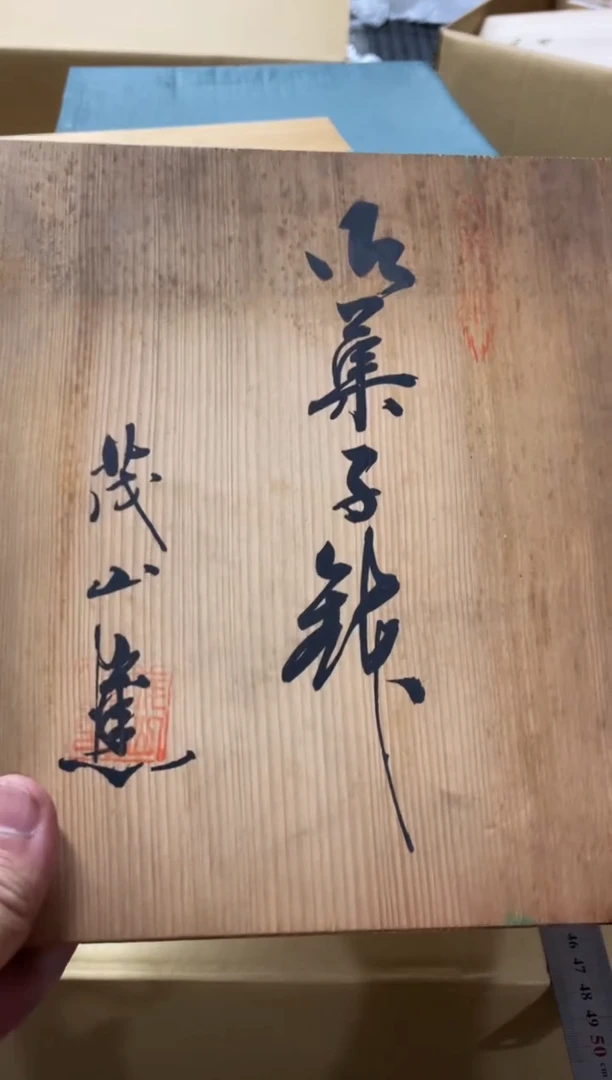 御菓子鉢
茂山造
46 47 48 49 50 cm